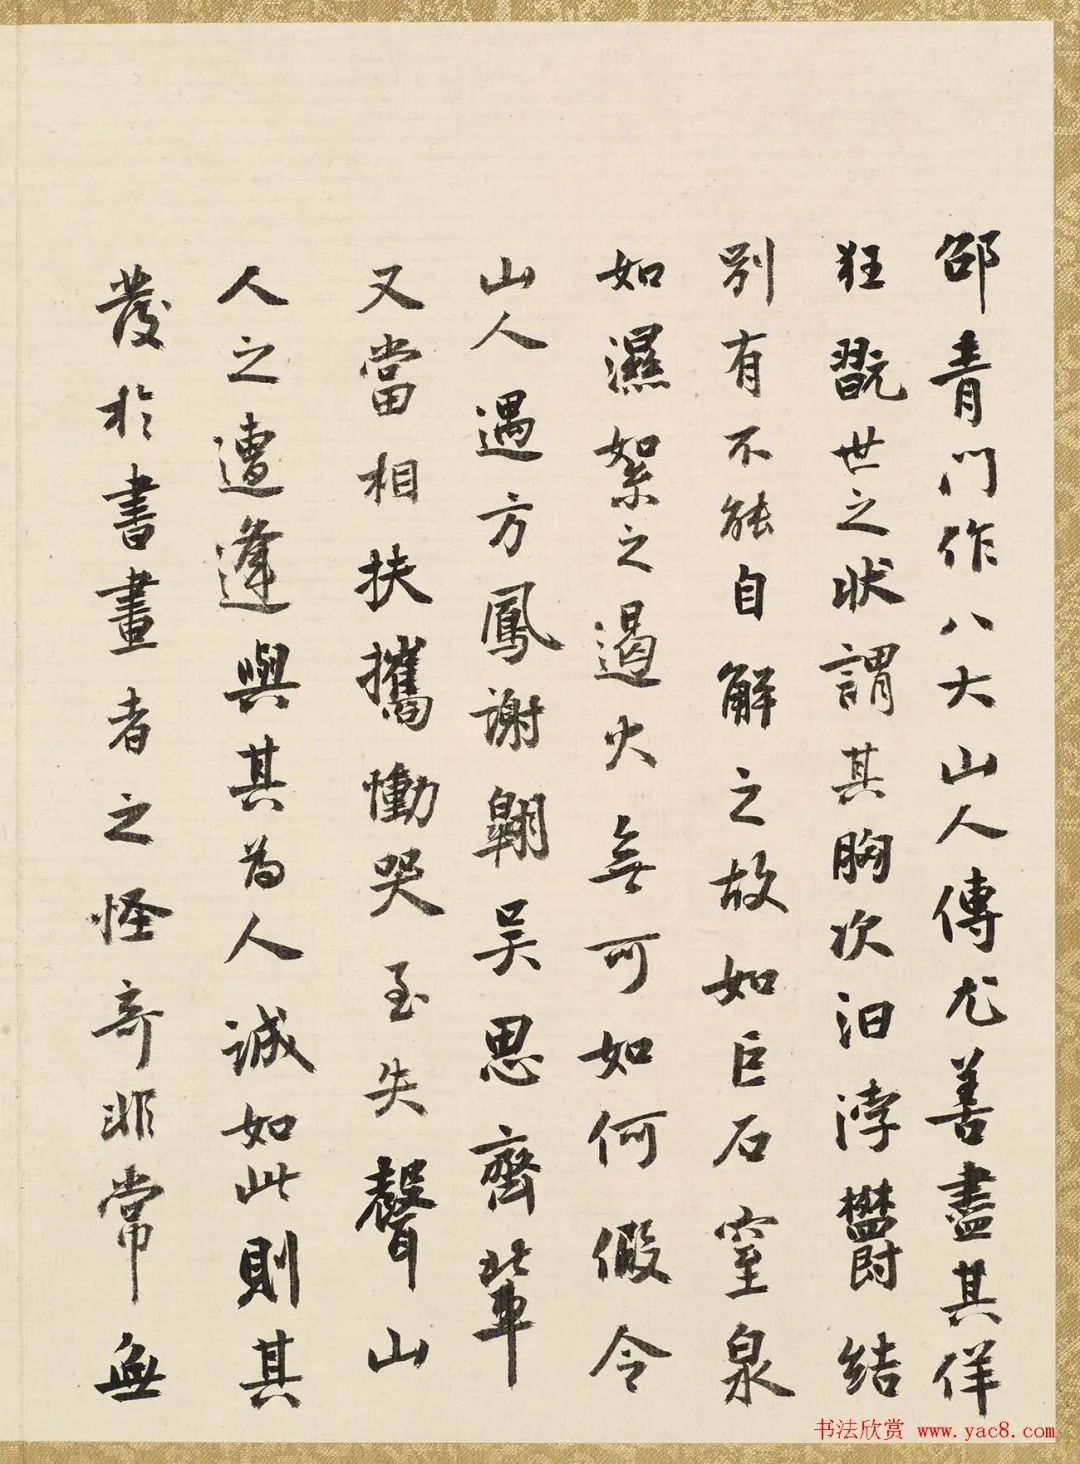 邵青門作八大山人傳尤善盡其佯
狂翫世之狀謂其胸次汨浡鬱結
別有不能自解之故如巨石窒泉
如濕絮之遏火無可如何假令
山人遇方鳳謝翱吳思齊輩
又當相扶攜慟哭至失聲山
人之遭逢與其為人誠如此則其
發於書畫者之怪奇非常無
书法欣赏 www.yac8.com